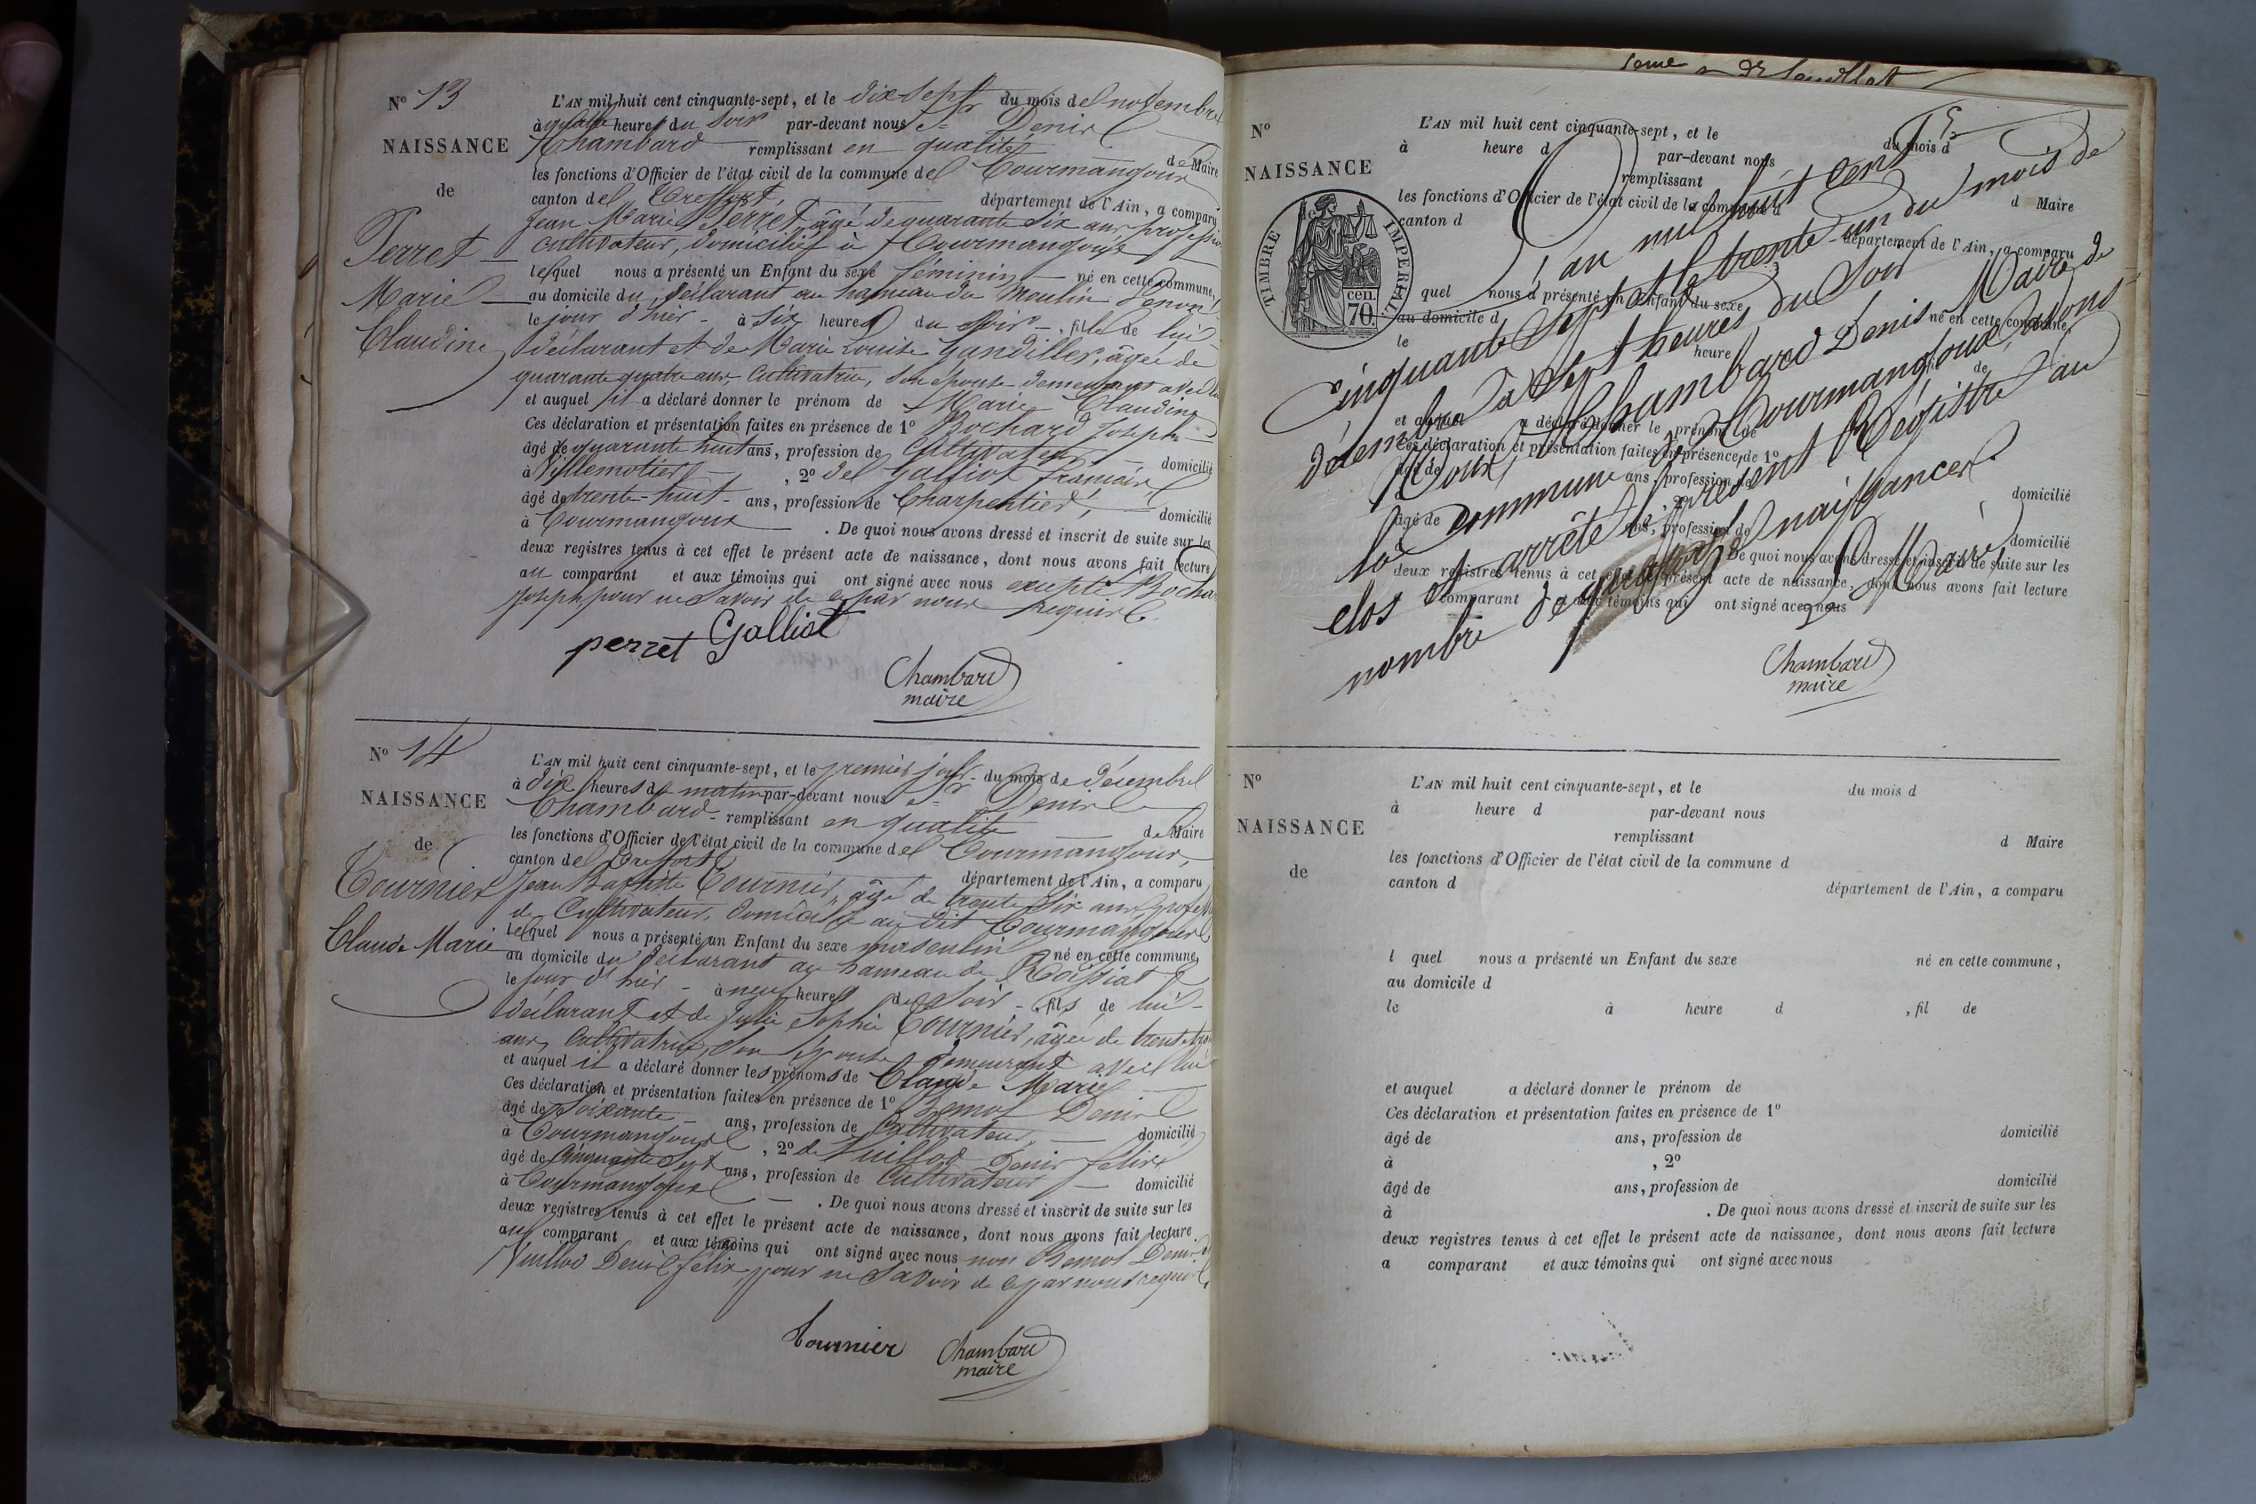 N° 13
NAISSANCE
de
Perret
Marie
Claudine
L'AN mil huit cent cinquante-sept, et le dix-sept du mois de novembre
à quatre heures du soir par-devant nous Denis
Chambard remplissant en qualité de Maire
les fonctions d'Officier de l'état civil de la commune de Courmangoux
canton de Treffort, département de l'Ain, a comparu
Jean Marie Perret, âgé de quarante six ans profession
cultivateur, domicilié à Courmangoux
lequel nous a présenté un Enfant du sexe féminin né en cette commune,
au domicile du déclarant au hameau du Moulin
le jour d'hier à six heures du soir, fille de lui
déclarant et de Marie Louise Gandillet, âgée de
quarante quatre ans, Cultivatrice, son épouse demeurant avec lui
et auquel il a déclaré donner le prénom de Marie Claudine
Ces déclaration et présentation faites en présence de 1° Bochard Joseph
âgé de quarante huit ans, profession de Cultivateur domicilié
à Villemotier, 2° de Galliot François
âgé de trente-huit ans, profession de Charpentier, domicilié
à Courmangoux. De quoi nous avons dressé et inscrit de suite sur les
deux registres tenus à cet effet le présent acte de naissance, dont nous avons fait lecture
au comparant et aux témoins qui ont signé avec nous excepté Bochard
Joseph pour ne savoir de ce par nous requis.
perret Galliot
Chambard
maire
N° 14
NAISSANCE
de
Tournier
Claude Marie
L'AN mil huit cent cinquante-sept, et le premier jour du mois de décembre
à dix heures du matin par-devant nous Denis
Chambard remplissant en qualité de Maire
les fonctions d'Officier de l'état civil de la commune de Courmangoux,
canton de Treffort département de l'Ain, a comparu
Jean Baptiste Tournier, âgé de trente six ans, profession
de Cultivateur, domicilié au dit Courmangoux
lequel nous a présenté un Enfant du sexe masculin né en cette commune,
au domicile du déclarant au hameau de Roissiat
le jour d'hier à neuf heures du soir, fils de lui
déclarant et de Julie Sophie Tournier, âgée de trente trois
ans, Cultivatrice, son épouse demeurant avec lui
et auquel il a déclaré donner les prénoms de Claude Marie
Ces déclaration et présentation faites en présence de 1° Denis
âgé de soixante ans, profession de Cultivateur, domicilié
à Courmangoux, 2° de Vuillod Denis félix
âgé de cinquante sept ans, profession de Cultivateur domicilié
à Courmangoux. De quoi nous avons dressé et inscrit de suite sur les
deux registres tenus à cet effet le présent acte de naissance, dont nous avons fait lecture
au comparant et aux témoins qui ont signé avec nous non Denis
Vuillod Denis félix, pour ne savoir de ce par nous requis
tournier Chambard
maire
N°
NAISSANCE
TIMBRE IMPERIAL
cen.
70.
L'AN mil huit cent cinquante-sept, et le du mois d
à heure d par-devant nous
remplissant d Maire
les fonctions d'Officier de l'état civil de la commune d
canton d département de l'Ain, a comparu
quel nous a présenté un Enfant du sexe né en cette commune,
au domicile d
le heure de
et auquel a déclaré donner le prénom de
Ces déclaration et présentation faites en présence de 1°
âgé de ans, profession de domicilié
2°
âgé de ans, profession de domicilié
De quoi nous avons dressé et inscrit de suite sur les
deux registres tenus à cet effet le présent acte de naissance, dont nous avons fait lecture
comparant et aux témoins qui ont signé avec nous
L'an mil huit cent
cinquante sept et le trente-un du mois de
décembre à sept heures du soir
Nous Chambard Denis Maire de
la commune de Courmangoux, avons
clos et arrêté le présent Régistre au
nombre de quatorze naissances.
Le Maire
Chambard
maire
N°
NAISSANCE
de
L'AN mil huit cent cinquante-sept, et le du mois d
à heure d par-devant nous
remplissant d Maire
les fonctions d'Officier de l'état civil de la commune d
canton d département de l'Ain, a comparu
l quel nous a présenté un Enfant du sexe né en cette commune,
au domicile d
le à heure d , fil de
et auquel a déclaré donner le prénom de
Ces déclaration et présentation faites en présence de 1°
âgé de ans, profession de domicilié
à , 2°
âgé de ans, profession de domicilié
à . De quoi nous avons dressé et inscrit de suite sur les
deux registres tenus à cet effet le présent acte de naissance, dont nous avons fait lecture
a comparant et aux témoins qui ont signé avec nous